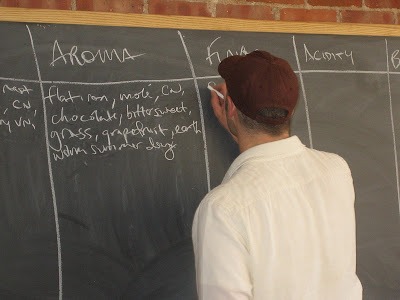 AROMA
FLAV
ACIDITY
B
flat iron, mole, CN,
chocolate, bittersweet,
grass, grapefruit, earth
warm summer day